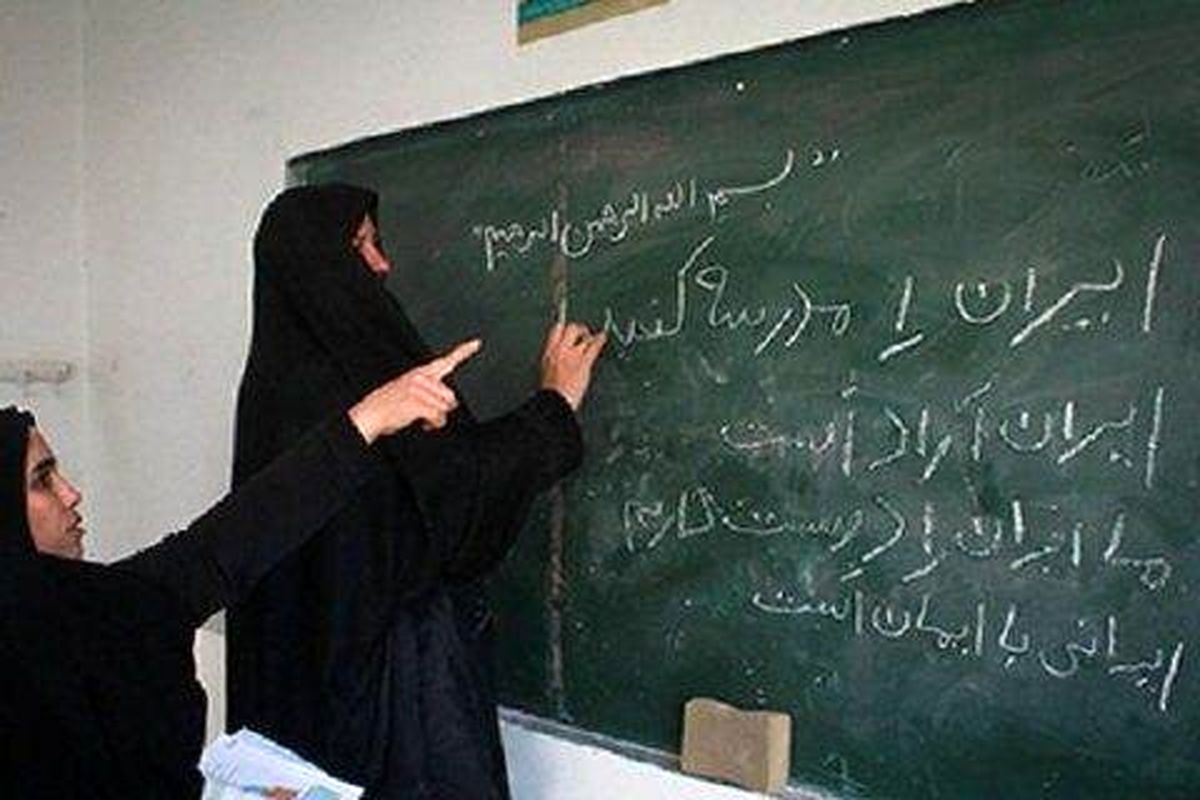 بسم الله الرحمن الرحیم
ایران را مدرسه کنید
ایران آزاد است
ما ایران را دوست داریم
ایرانی با ایمان است